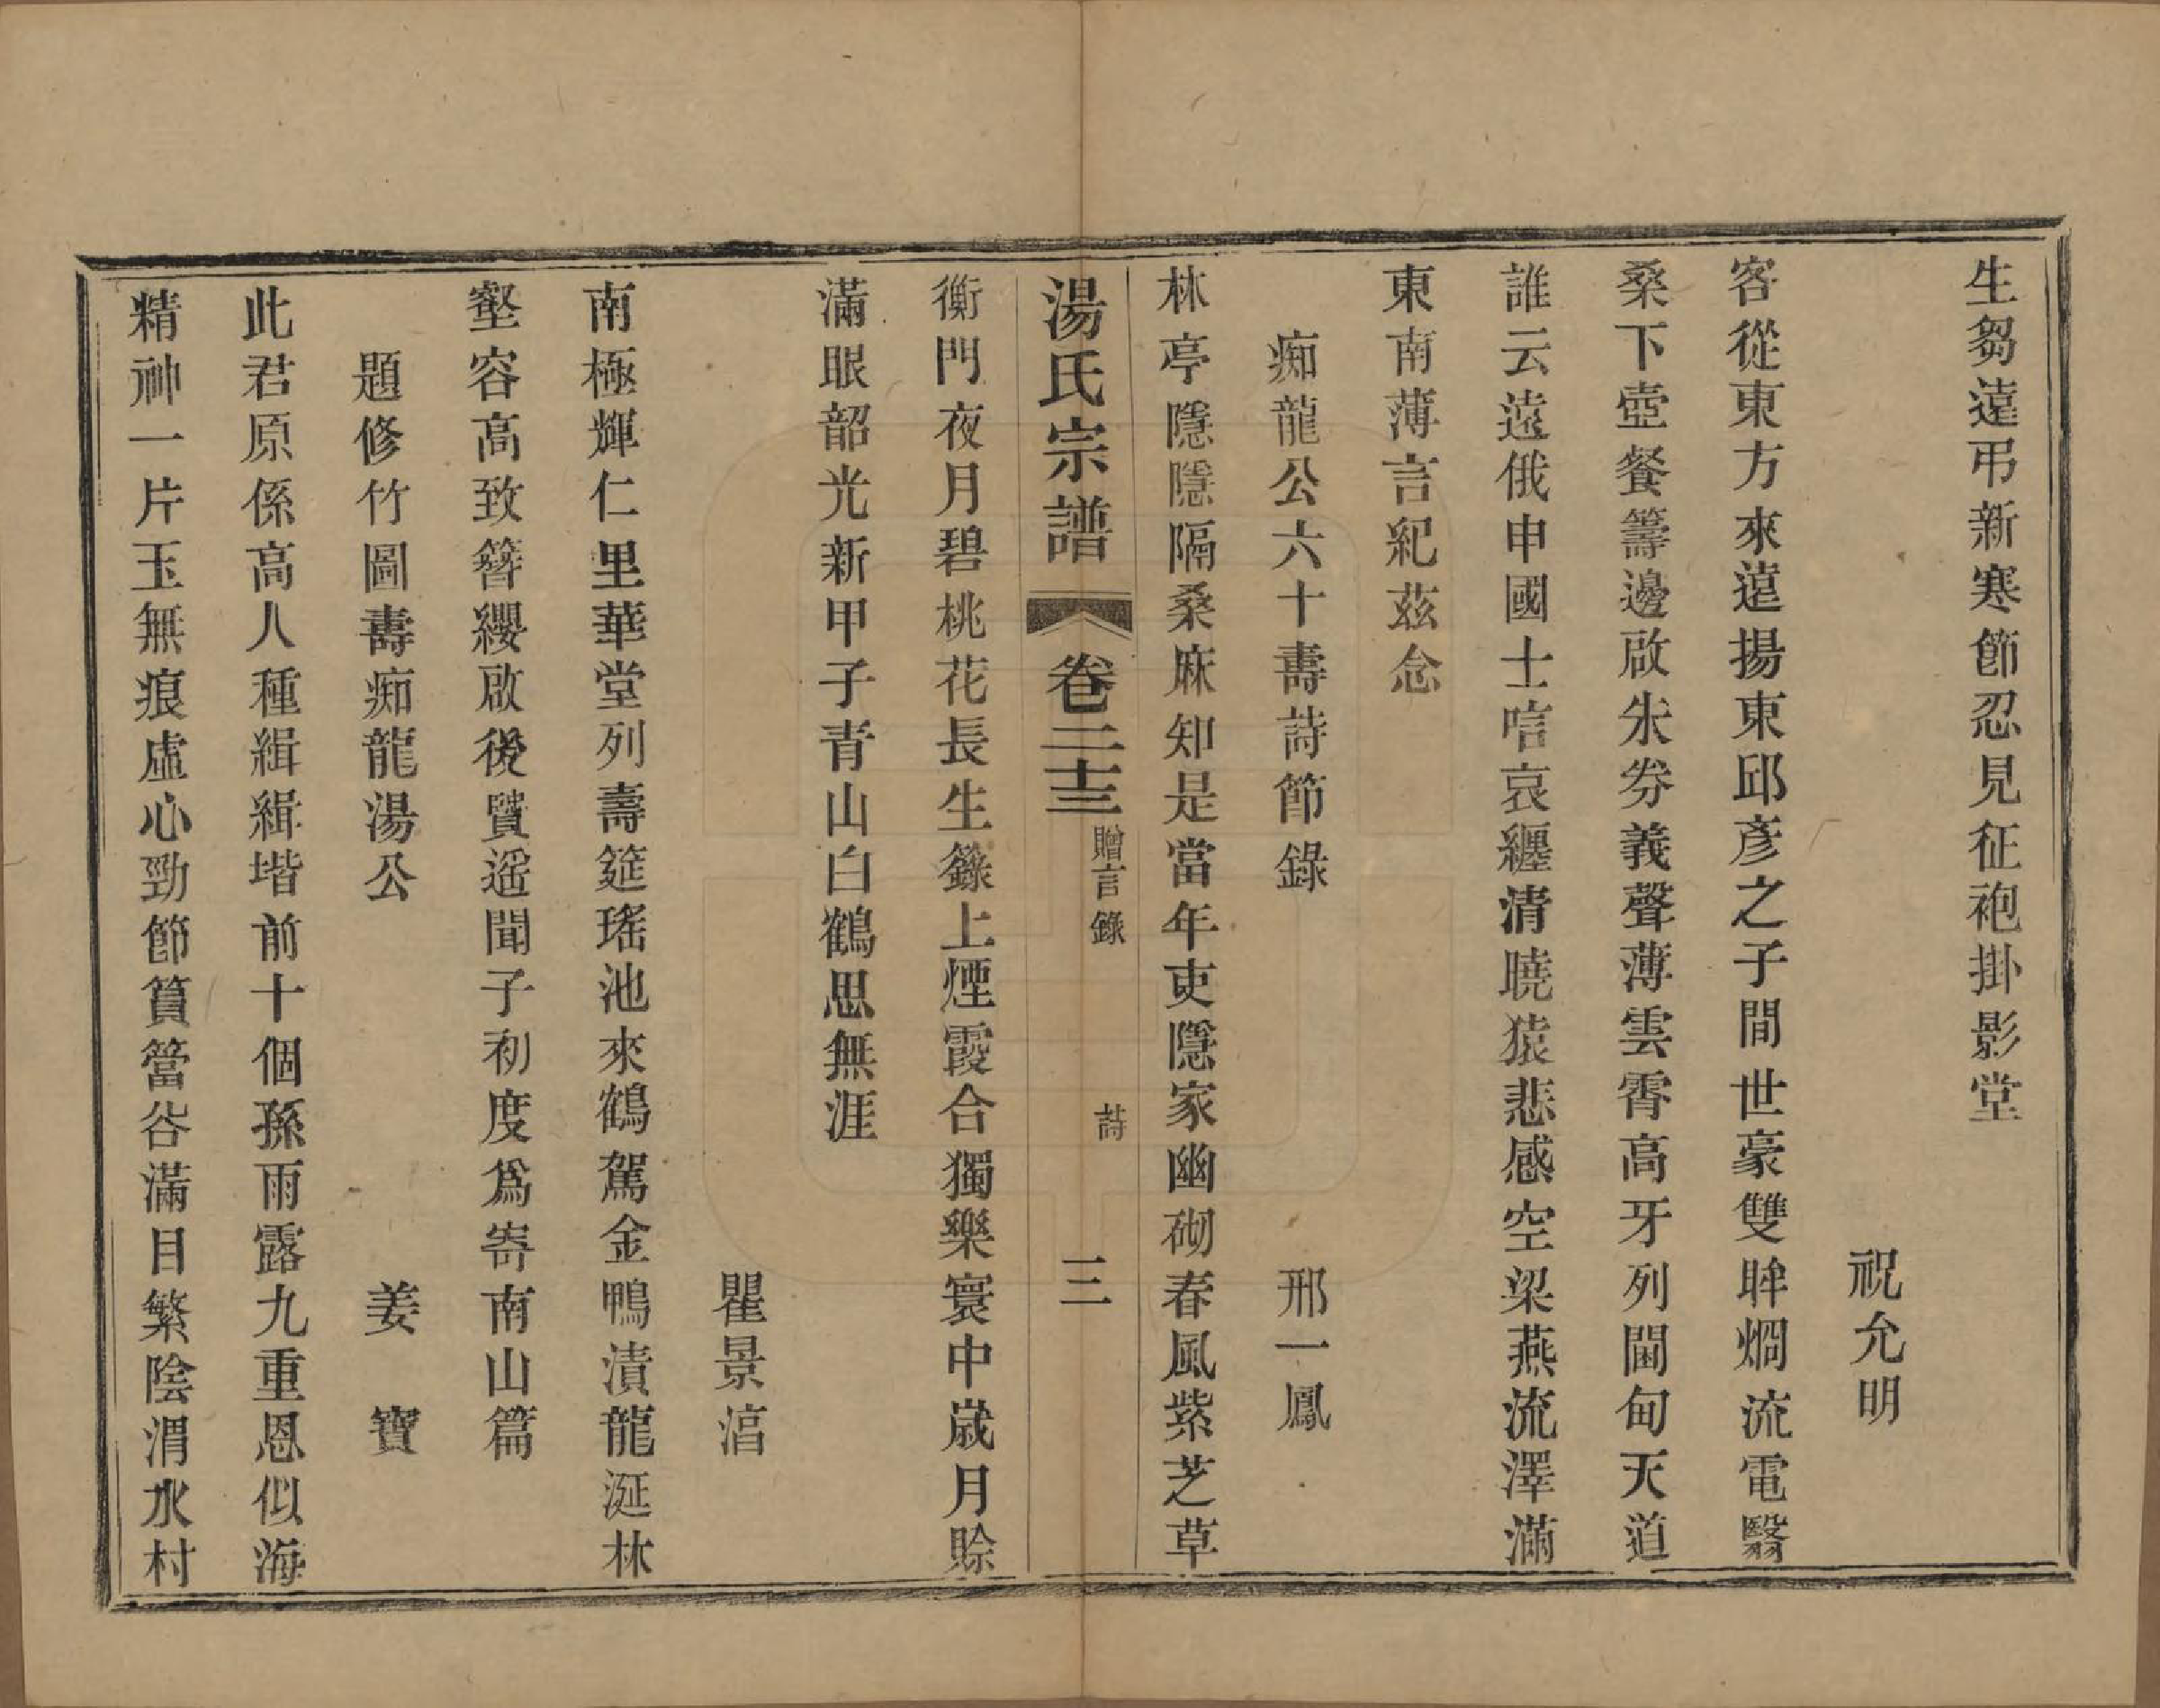 生芻遠弔新寒節忍見征袍掛影堂
祝允明
客從東方來遠揚東邱彥之子間世豪雙眸烱流電翳
桑下壺餐籌邊啟朱券義聲薄雲霄高牙列閫甸天道
誰云遠俄申國士唁哀纏清曉猿悲感空梁燕流澤滿
東南薄言紀茲念
痴龍公六十壽詩節錄
邢一鳳
林亭隱隱隔桑麻知是當年吏隱家幽砌春風紫芝草
湯氏宗譜
卷二十三
贈言錄
詩
三
衡門夜月碧桃花長生籙上煙霞合獨樂寰中歲月賒
滿眼韶光新甲子青山白鶴思無涯
瞿景淳
南極輝仁里華堂列壽筵瑤池來鶴駕金鴨漬龍涎林
壑容高致簪纓啟後賢遥聞子初度爲寄南山篇
題修竹圖壽痴龍湯公
姜寶
此君原係高人種緝緝堦前十個孫雨露九重恩似海
精神一片玉無痕虛心勁節篔簹谷滿目繁陰渭水村